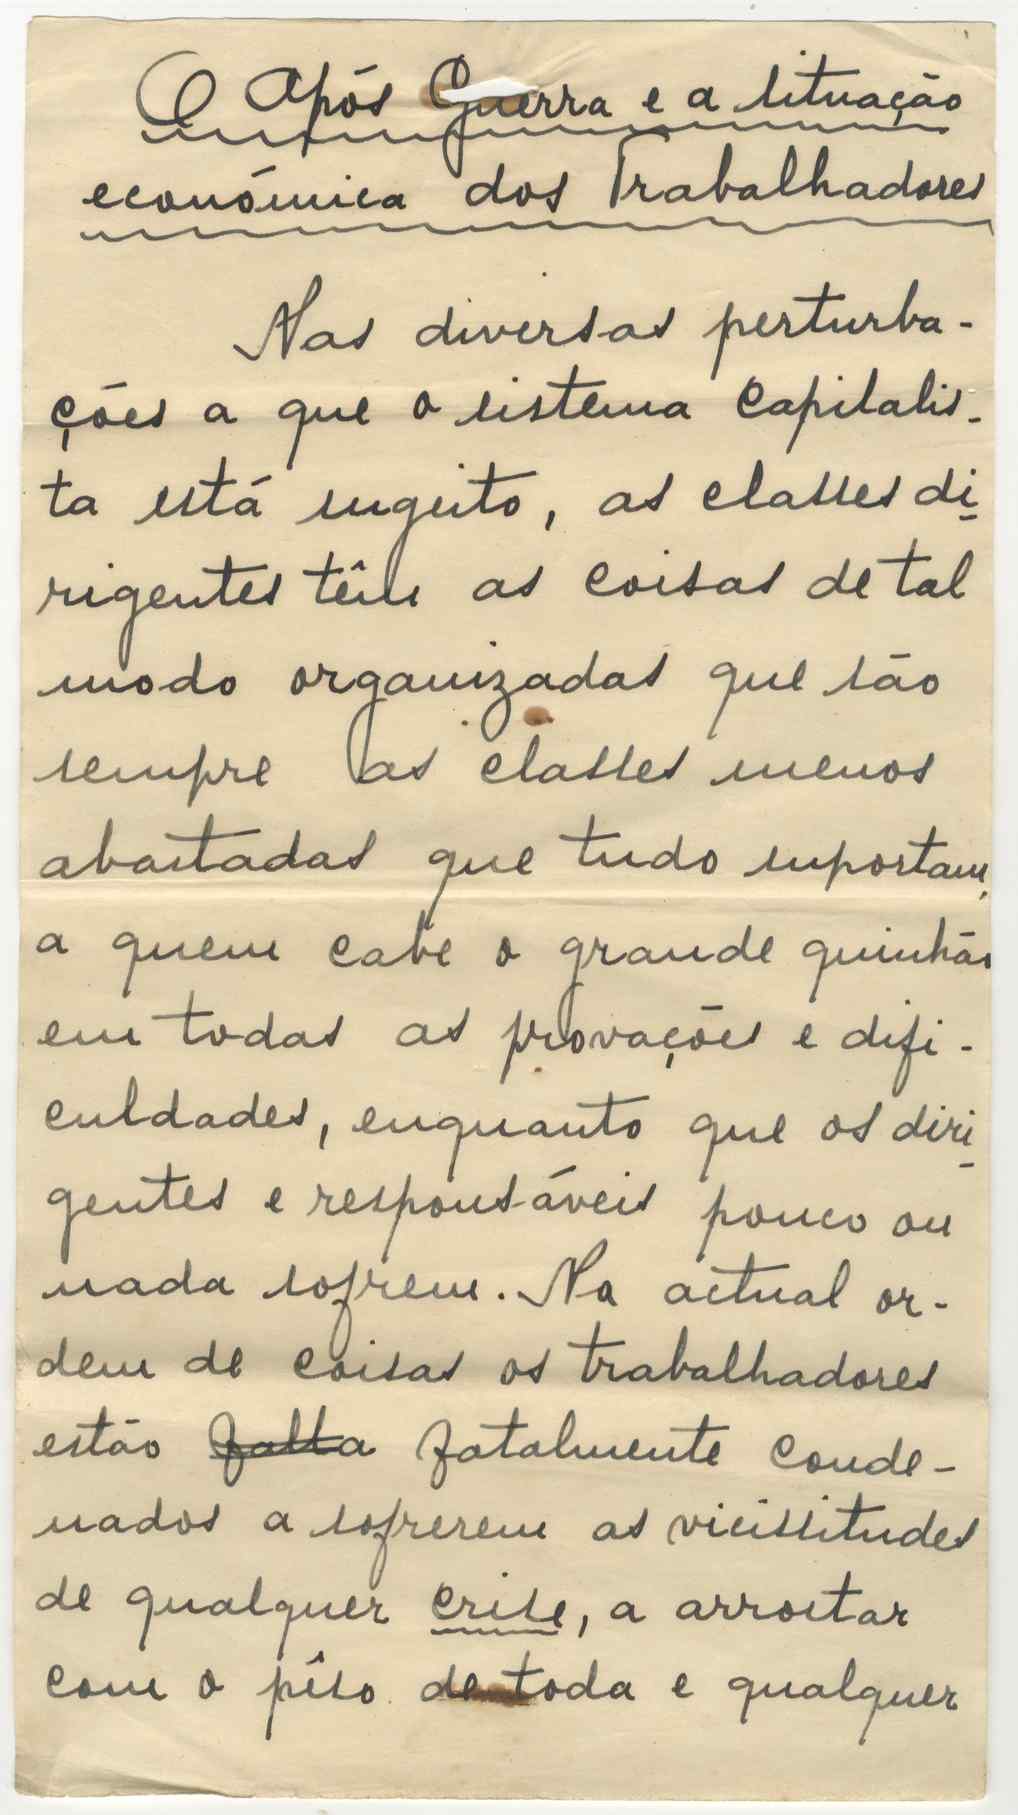 O Após Guerra e a situação
económica dos Trabalhadores
Nas diversas perturba-
ções a que o sistema capitalis-
ta está sugeito, as classes di-
rigentes têm as coisas de tal
modo organizadas que são
sempre as classes menos
abastadas que tudo suportam,
a quem cabe o grande quinhão
em todas as provações e difi-
culdades, enquanto que os diri-
gentes e responsáveis pouco ou
nada sofrem. Na actual or-
dem de coisas os trabalhadores
estão falta fatalmente conde-
nados a sofrerem as vicissitudes
de qualquer crise, a arrostar
com o pêso de toda e qualquer